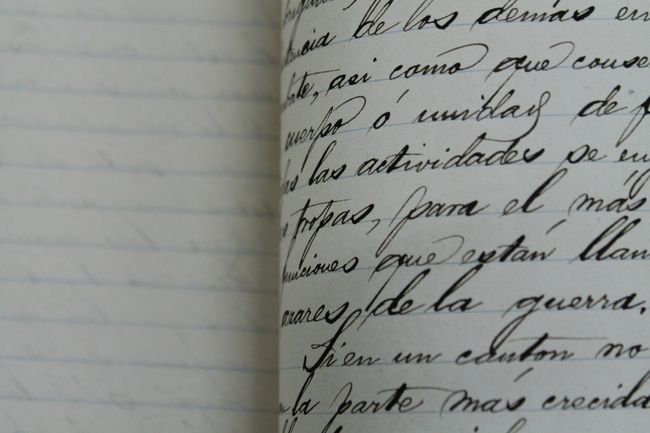 de los demás en
así como que conse
cuerpo ó unidad de
las las actividades se en
tropas, para el más
unciones que están llam
azares de la guerra.
Si en un cantón no
la parte más crecida